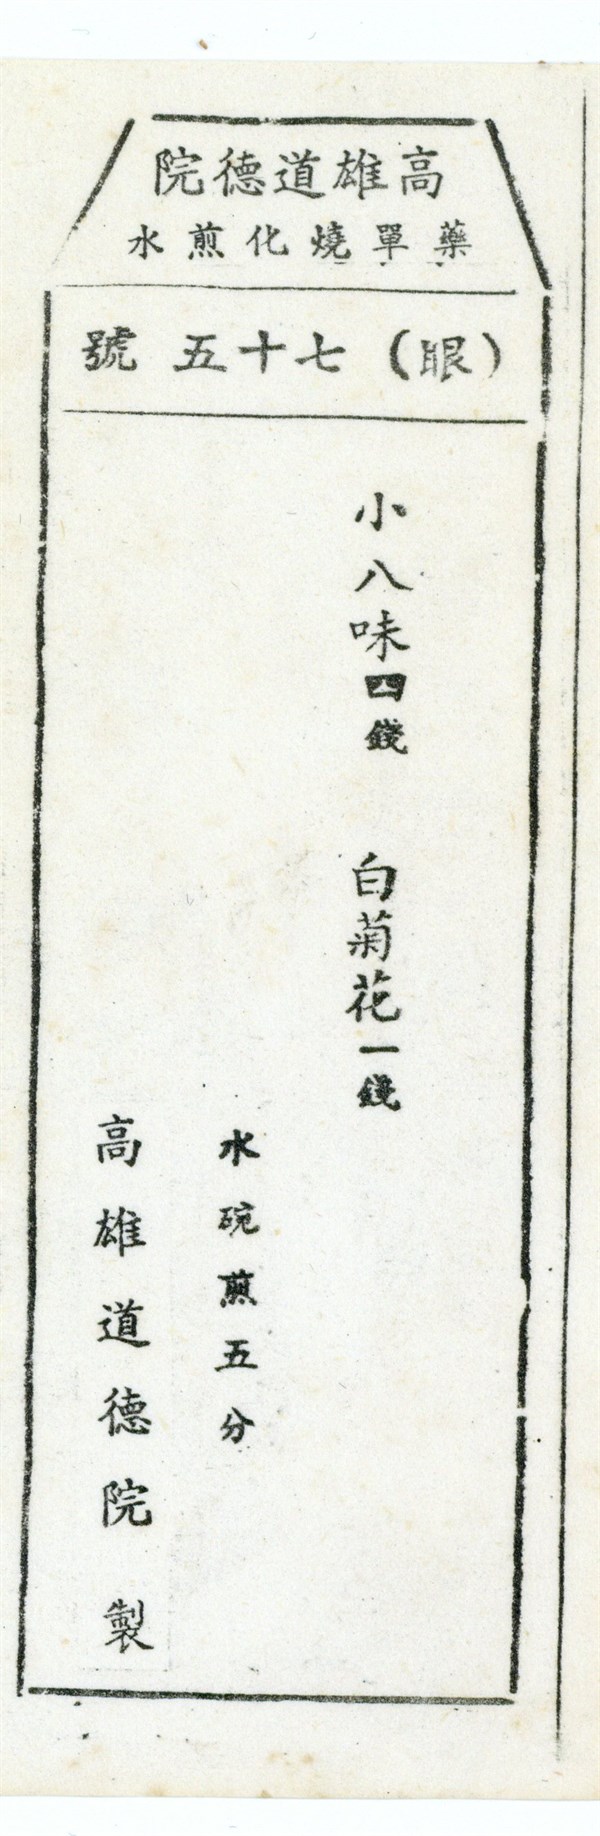 高雄道德院
藥單燒化煎水
（眼）七十五號
小八味四錢　白菊花一錢
水碗煎五分
高雄道德院製